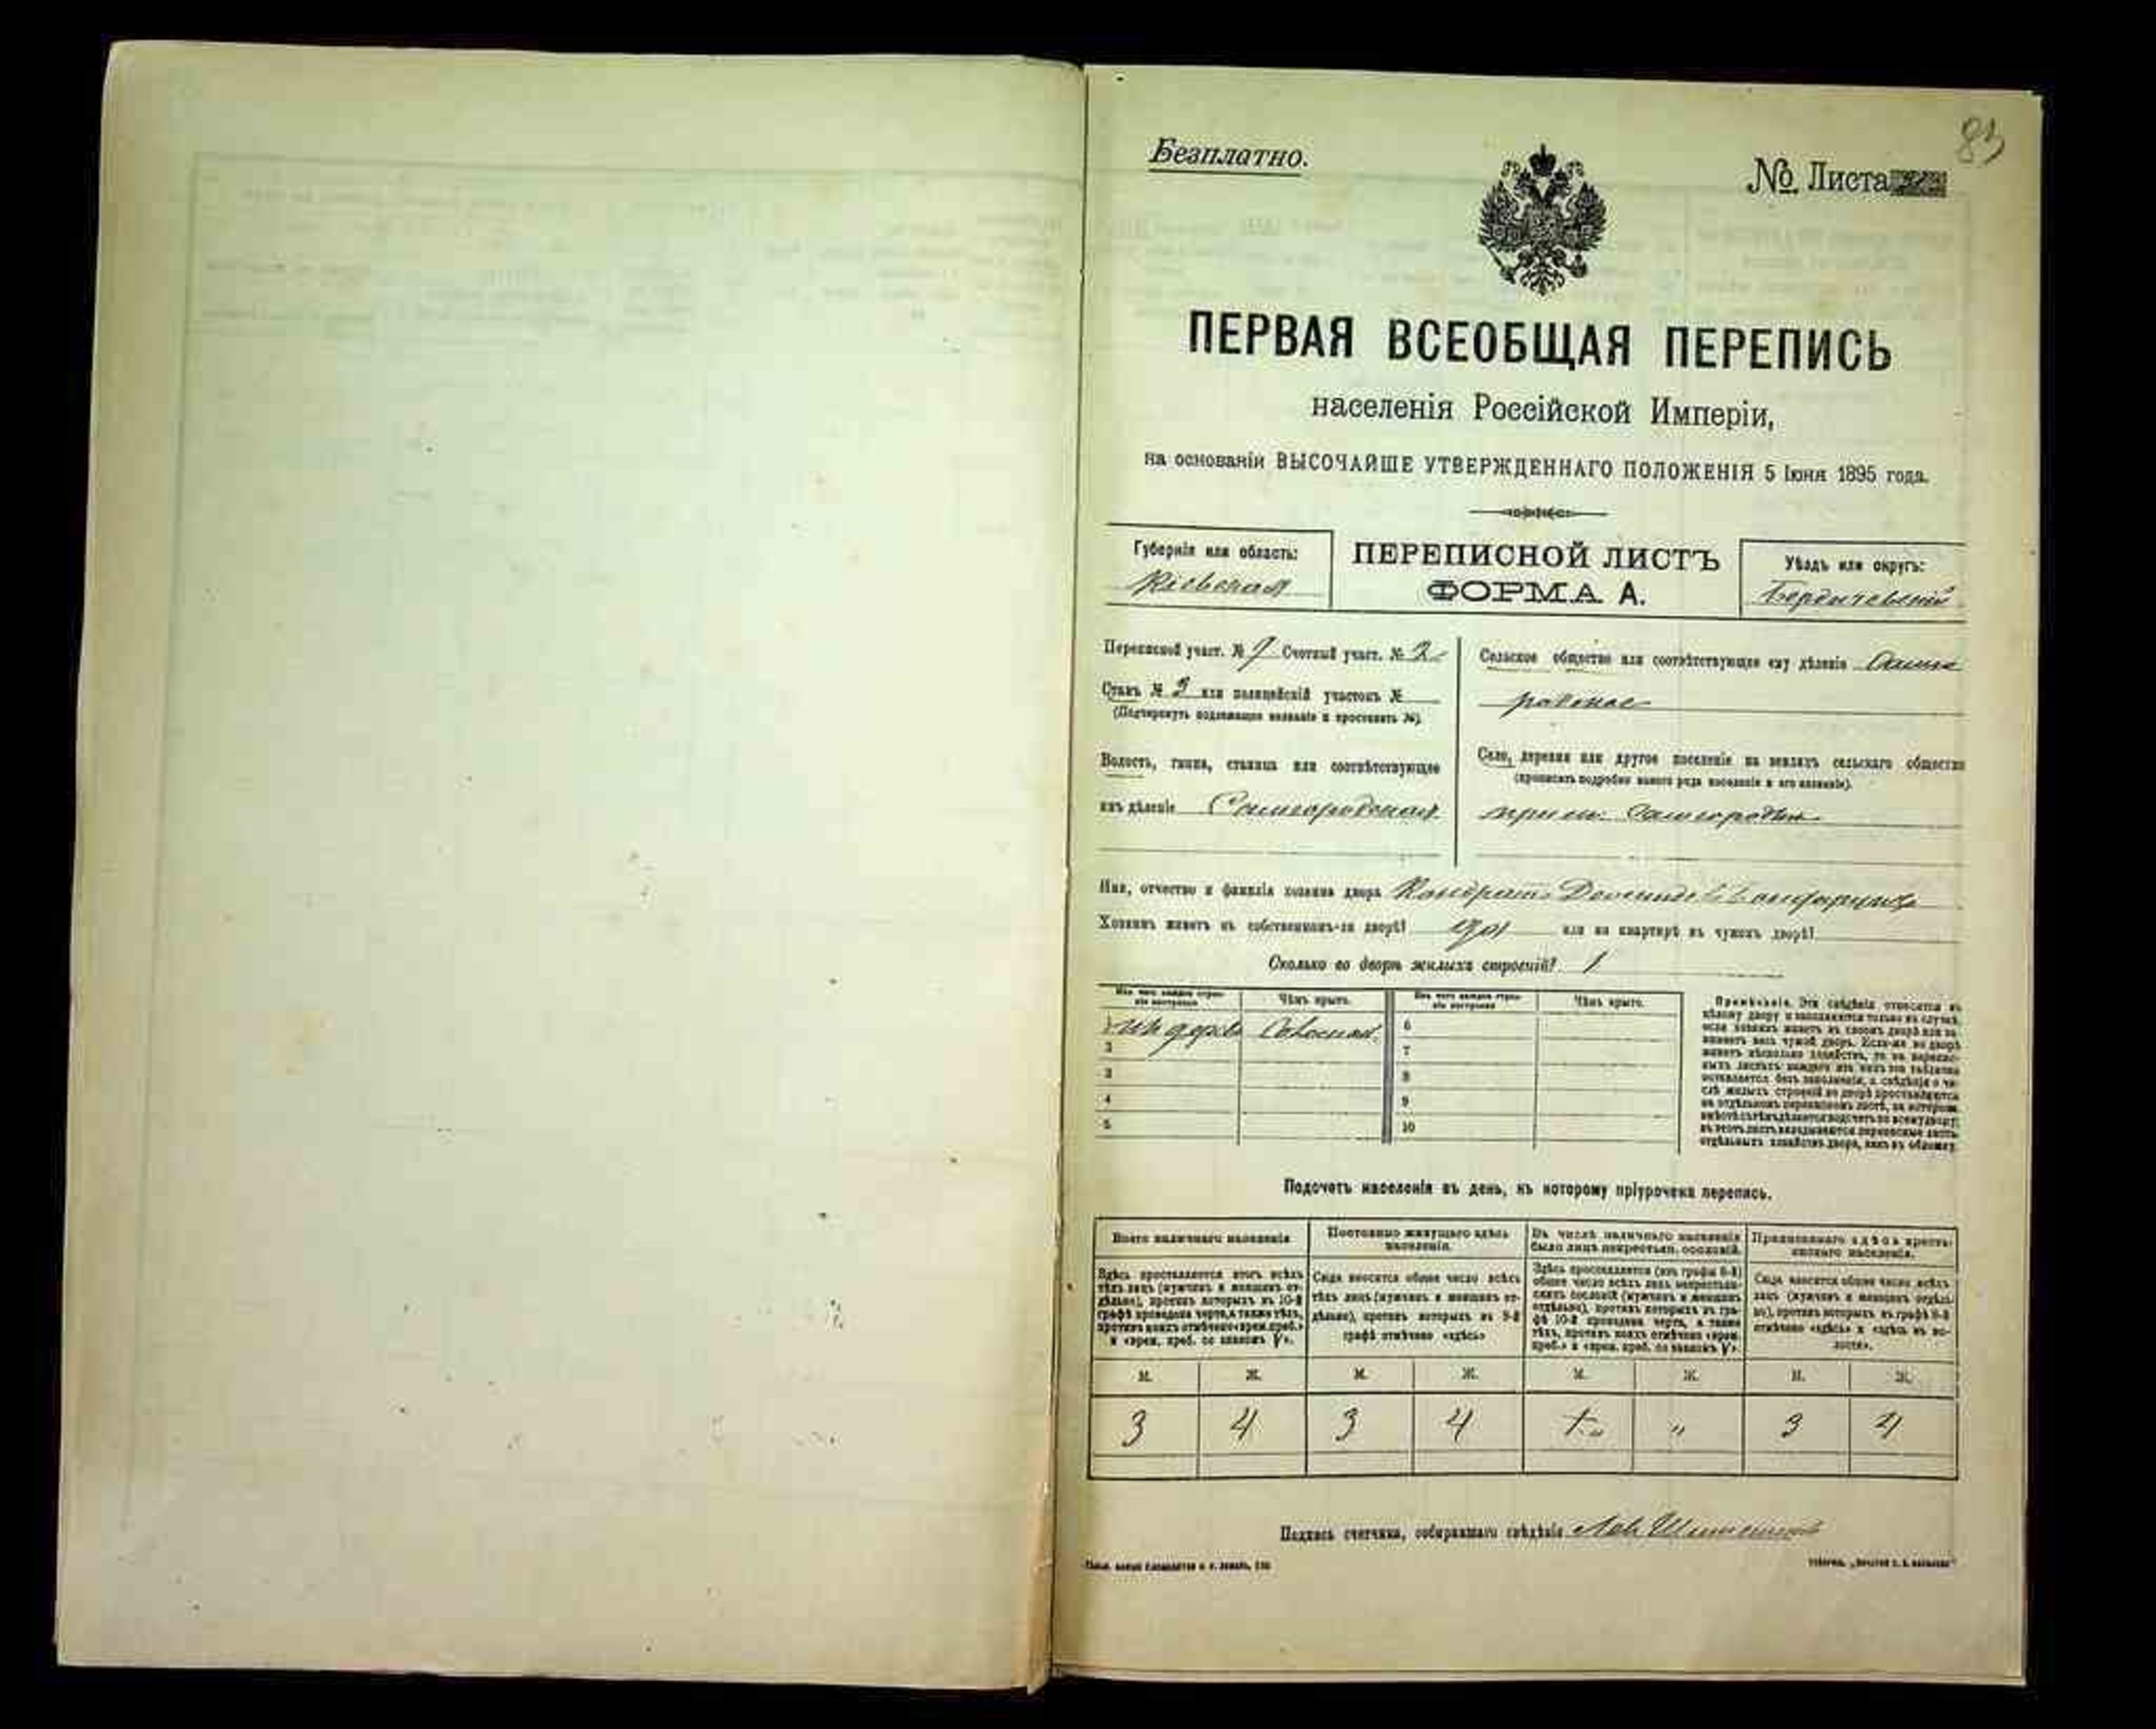 83
Безплатно.
№ Листа
ПЕРВАЯ ВСЕОБЩАЯ ПЕРЕПИСЬ
населенія Россійской Имперіи,
на основаніи ВЫСОЧАЙШЕ УТВЕРЖДЕННАГО ПОЛОЖЕНІЯ 5 Іюня 1895 года.
Губернія или область:
Кіевская
ПЕРЕПИСНОЙ ЛИСТЪ
ФОРМА А.
Уѣздъ или округъ:
Бердичевскій
Переписной участ. № 7 Счетный участ. № 2
Станъ № 3 или полицейскій участокъ №
(Подчеркнуть подлежащее названіе и проставить №).
Волость, гмина, станица или соотвѣтствующее
имъ дѣленіе Самгородская
Сельское общество или соотвѣтствующее ему дѣленіе
Село, деревня или другое поселеніе на земляхъ сельскаго общества
(прописать подробно какого рода поселеніе и его названіе).
Имя, отчество и фамилія хозяина двора Кондратъ
Хозяинъ живетъ въ собственномъ-ли дворѣ? да или на квартирѣ въ чужомъ дворѣ?
Сколько во дворѣ жилыхъ строеній? 1
Изъ чего каждое строеніе построено Чѣмъ крыто. Изъ чего каждое строеніе построено Чѣмъ крыто.
1 6
2 7
3 8
4 9
5 10
Примѣчаніе. Эти свѣдѣнія относятся къ
цѣлому двору и заполняются только въ случаѣ,
если хозяинъ живетъ въ своемъ дворѣ или за-
нимаетъ весь чужой дворъ. Если-же во дворѣ
живетъ нѣсколько хозяйствъ, то на перепис-
ныхъ листахъ каждаго изъ нихъ эта табличка
оставляется безъ заполненія, а свѣдѣнія о чи-
слѣ жилыхъ строеній во дворѣ проставляются
на отдѣльномъ переписномъ листѣ, на которомъ
въ этотъ листъ вкладываются переписные листы
отдѣльныхъ хозяйствъ двора, какъ въ обложку.
Подсчетъ населенія въ день, къ которому пріурочена перепись.
Всего наличнаго населенія
Здѣсь проставляется итогъ всѣхъ
тѣхъ лицъ (мужчинъ и женщинъ от-
дѣльно), противъ которыхъ въ 10-й
графѣ проведена черта, а также тѣхъ,
противъ коихъ отмѣчено «врем. преб.»
и «врем. преб. со знакомъ V».
Постоянно живущаго здѣсь
населенія.
Сюда вносится общее число всѣхъ
тѣхъ лицъ (мужчинъ и женщинъ от-
дѣльно), противъ которыхъ въ 9-й
графѣ отмѣчено «здѣсь»
Въ числѣ наличнаго населенія
было лицъ некрестьян. сословій.
Здѣсь проставляется (изъ графы 6-й)
общее число всѣхъ лицъ некрестьян-
скихъ сословій (мужчинъ и женщинъ
отдѣльно), противъ которыхъ въ гра-
фѣ 10-й проведена черта, а также
тѣхъ, противъ коихъ отмѣчено «врем.
преб.» и «врем. преб. со знакомъ V».
Приписаннаго здѣсь кресть-
янскаго населенія.
Сюда вносится общее число всѣхъ
лицъ (мужчинъ и женщинъ отдѣль-
но), противъ которыхъ въ графѣ 8-й
отмѣчено «здѣсь» и «здѣсь въ во-
лости».
М. Ж. М. Ж. М. Ж. М. Ж.
3 4 3 4 „ „ 3 4
Подпись счетчика, собиравшаго свѣдѣнія